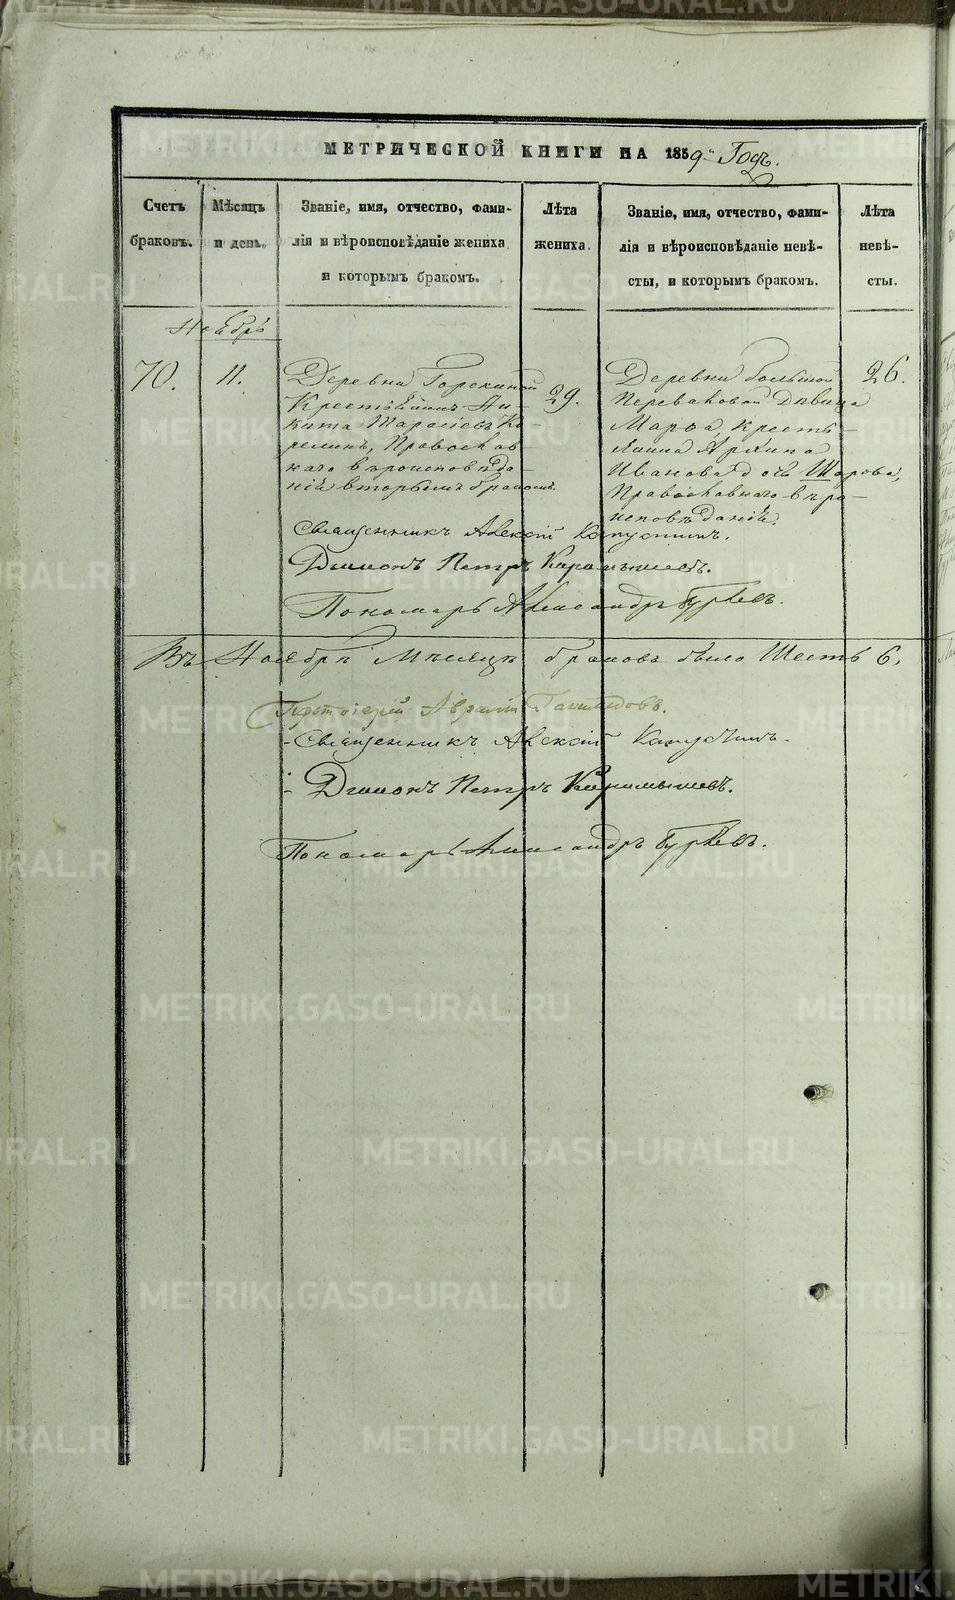 МЕТРИЧЕСКОЙ КНИГИ НА 1859й Годъ.
Счетъ браковъ.
Мѣсяцъ и день.
Званіе, имя, отчество, фами-
лія и вѣроисповѣданіе жениха
и которымъ бракомъ.
Лѣта жениха.
Званіе, имя, отчество, фами-
лія и вѣроисповѣданіе невѣ-
сты, и которымъ бракомъ.
Лѣта невѣ-
сты.
Ноябрь
70.
11.
Деревни
Крестьянинъ Ни-
кита Тарасіевъ Ко-
релинъ, Православ-
наго вѣроисповѣда-
нія вторымъ бракомъ.
29.
Деревни большой
Перваковой Дѣвица
Марѳа, кресть-
янина
Иванова дочь Шарова,
Православнаго вѣро-
исповѣданія.
26.
Священникъ Алексій Капустинъ.
Діаконъ Петръ Карамышевъ.
Пономарь Александръ Гурьевъ.
Въ Ноябрѣ Мѣсяцѣ браковъ было Шесть 6.
Протоіерей Авраамій
Священникъ Алексій Капустинъ
Діаконъ Петръ Карамышевъ.
Пономарь Александръ Гурьевъ.
METRIKI.GASO-URAL.RU